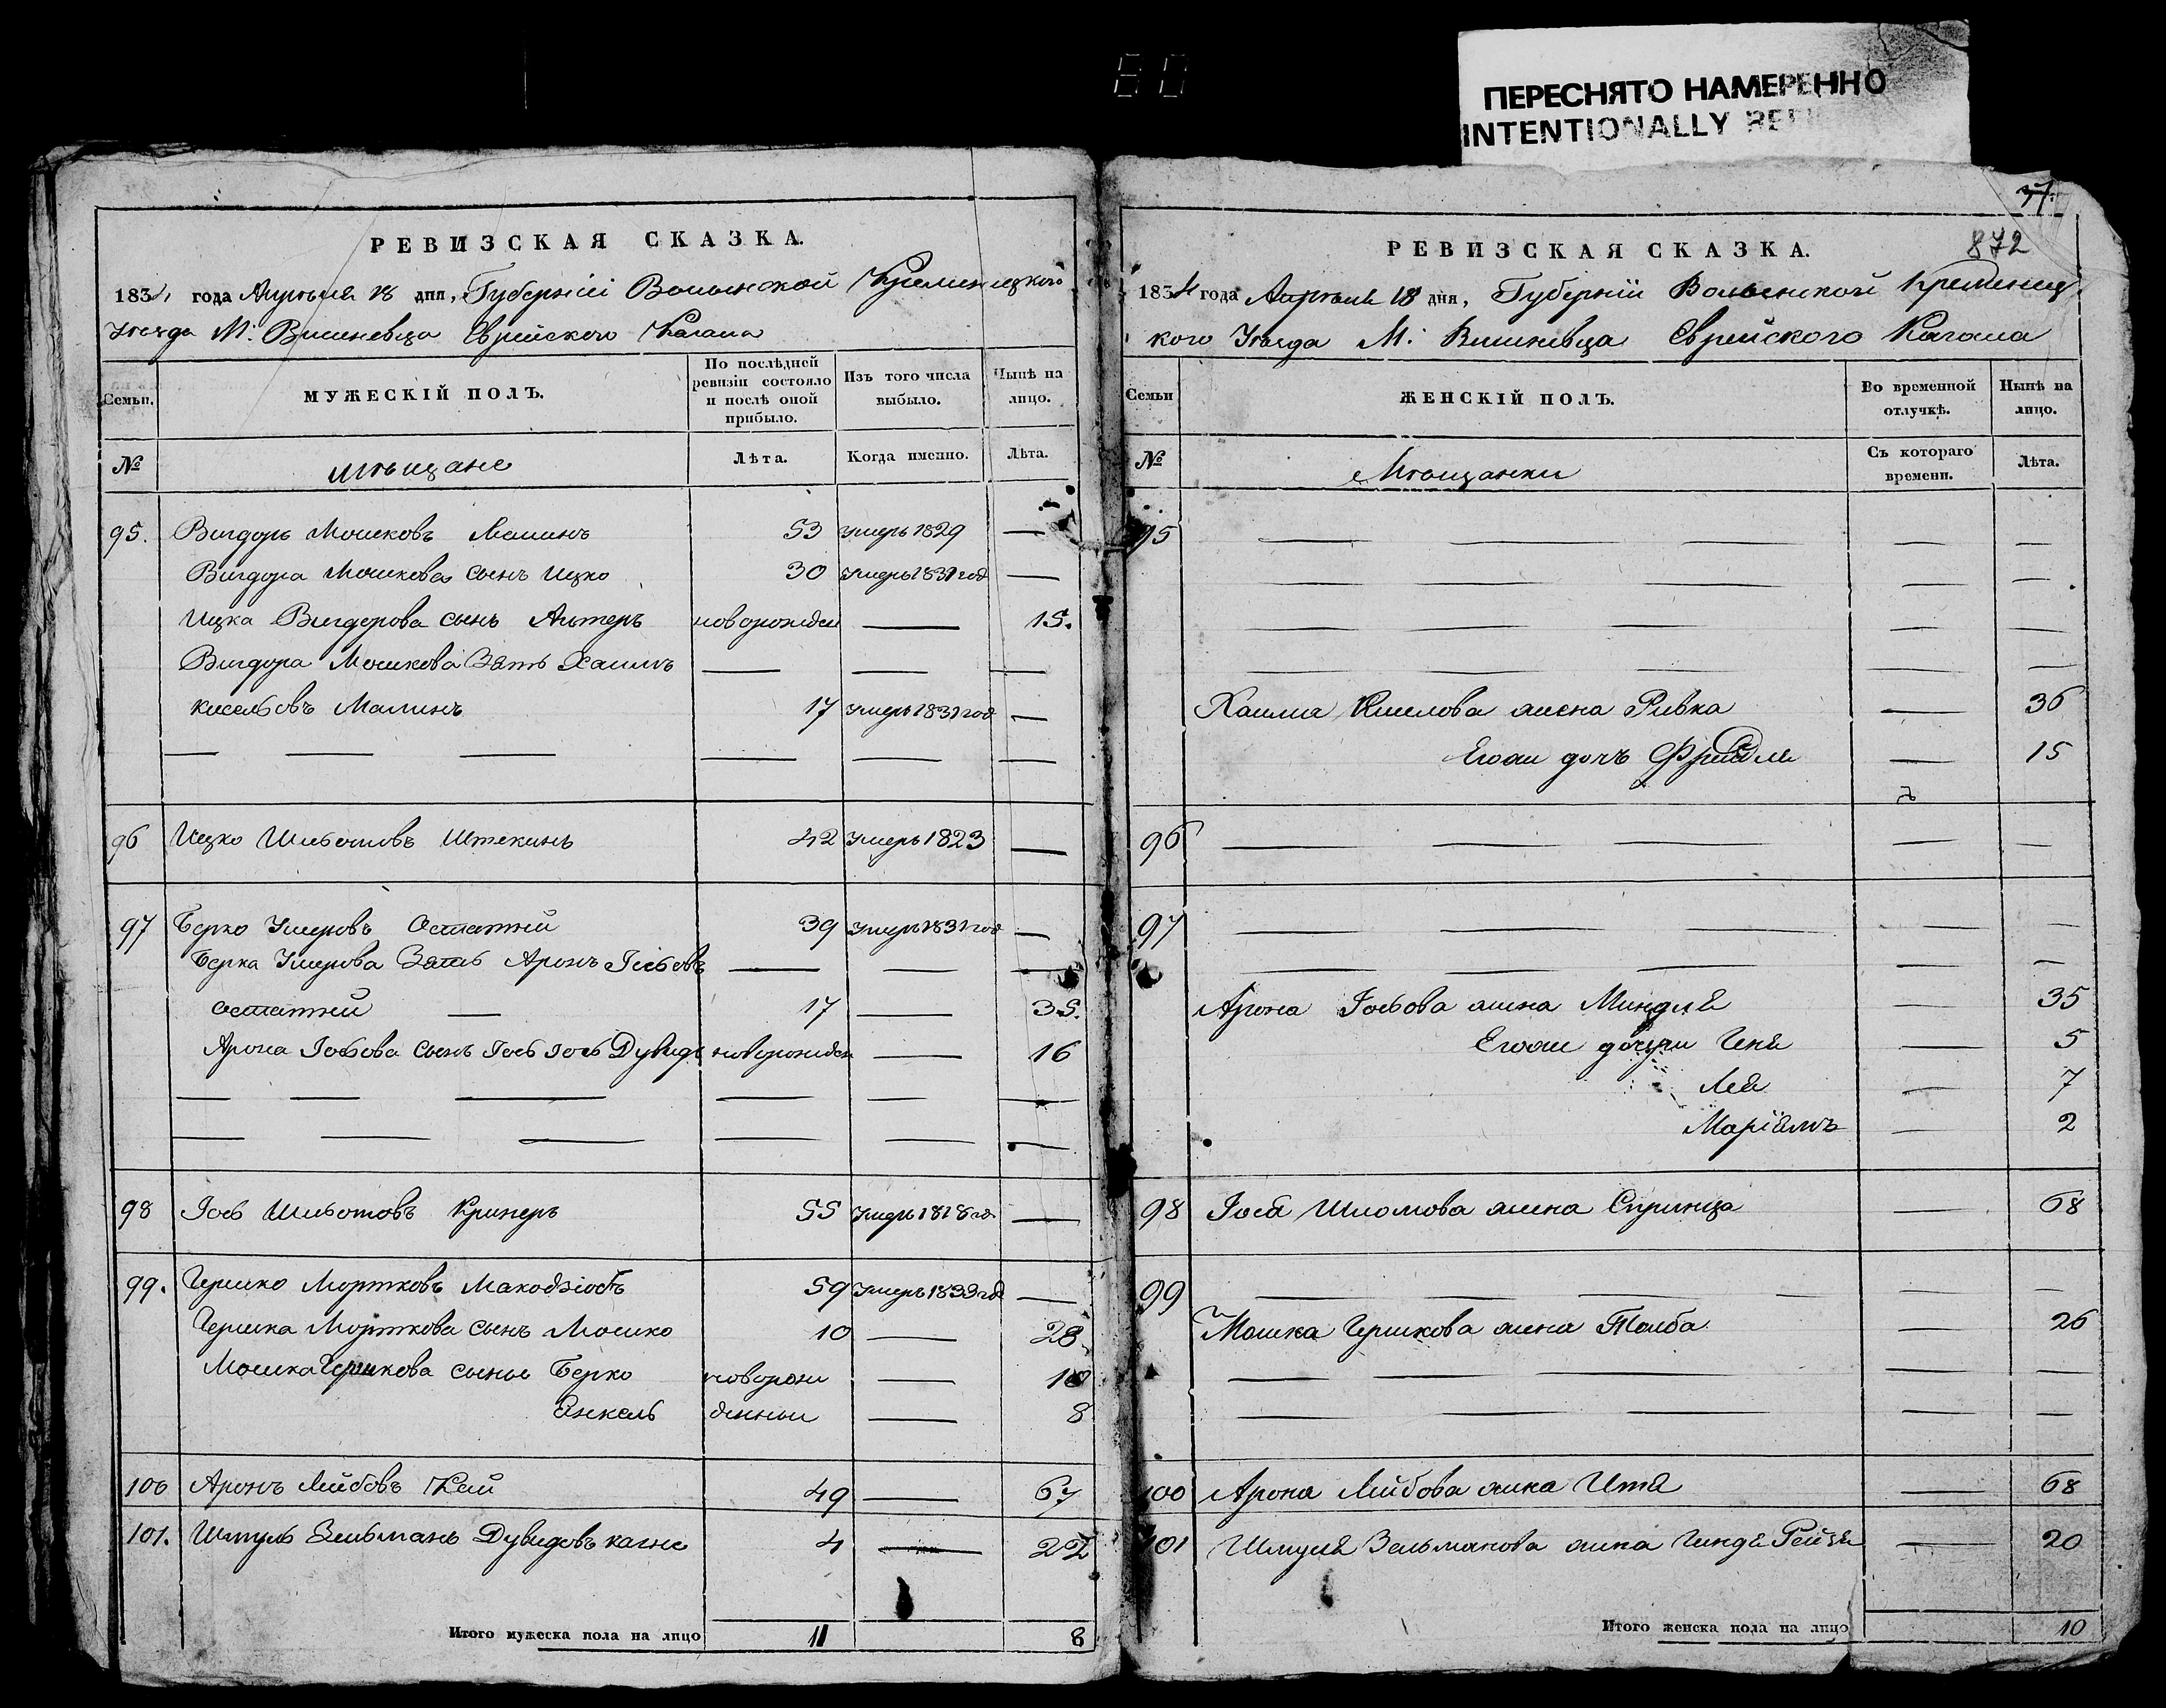 80
ПЕРЕСНЯТО НАМЕРЕННО
INTENTIONALLY
РЕВИЗСКАЯ СКАЗКА.
1834 года Апрѣля 18 дня, Губерніи Волынской Кременецкого
Уѣзда М. Вишневца Еврейского Кагала
Семьи.
МУЖЕСКІЙ ПОЛЪ.
По послѣдней ревизіи состояло и послѣ оной прибыло.
Изъ того числа выбыло.
Нынѣ на лицо.
№
мѣщане
Лѣта.
Когда именно.
Лѣта.
95. Вигдоръ Мошковъ Малинъ 53 умеръ 1829 —
Вигдора Мошкова сынъ Ицко 30 умеръ 1831 год —
Ицка Вигдорова сынъ Альтеръ новорожден — 15.
Вигдора Мошкова Зять Хаимъ — — —
Кисельовъ Малинъ 17 умеръ 1831 год —
96 Ицко Шльомовъ Штекинъ 42 умеръ 1823 —
97 Берко Умеровъ Остатній 39 умеръ 1831 год —
Берка Умерова Зять Аронъ Іосьовъ — — —
остатній — 17 — 35.
Арона Іосьова сынъ Іось Дувидъ новорожден — 16
98 Іось Шльомовъ Кришеръ 55 умеръ 1818 го —
99. Гершко Мортковъ Макодзіобъ 59 умеръ 1833 год —
ГершкаМорткова сынъ Мошко 10 — 28
Мошка Гершкова сыны Берко новорож — 10
Янкель денныи — 8
100 Аронъ Лейбовъ Кей 49 — 67
101. Шмуль Зельманъ Дувидовъ кагне 4 — 22
Итого мужеска пола на лицо 11 8
37.
872
РЕВИЗСКАЯ СКАЗКА.
1834 года Апрѣля 18 дня, Губерніи Волынской Кременец
кого Уѣзда М. Вишневца Еврейского Кагала
Семьи
ЖЕНСКІЙ ПОЛЪ.
Во временной отлучкѣ.
Нынѣ на лицо.
№
Мѣщанки
Съ котораго времени.
Лѣта.
95 — — — — —
Хаима Киселова жена Ривка — 36
Егожи дочъ Фрейдля — 15
96 — — — — —
97 — — — — —
Арона Іосьова жена Миндля — 35
Егожи дочери Геня — 5
Лея — 7
Маріямъ — 2
98 Іося Шломова жена Спринца — 68
99 — — — — —
Мошка Гершкова жена Толба — 26
100 Арона Лейбова жина Итя — 68
101 Шмуля Зельманова жина Гиндя Рейзя — 20
Итого женска пола на лицо 10